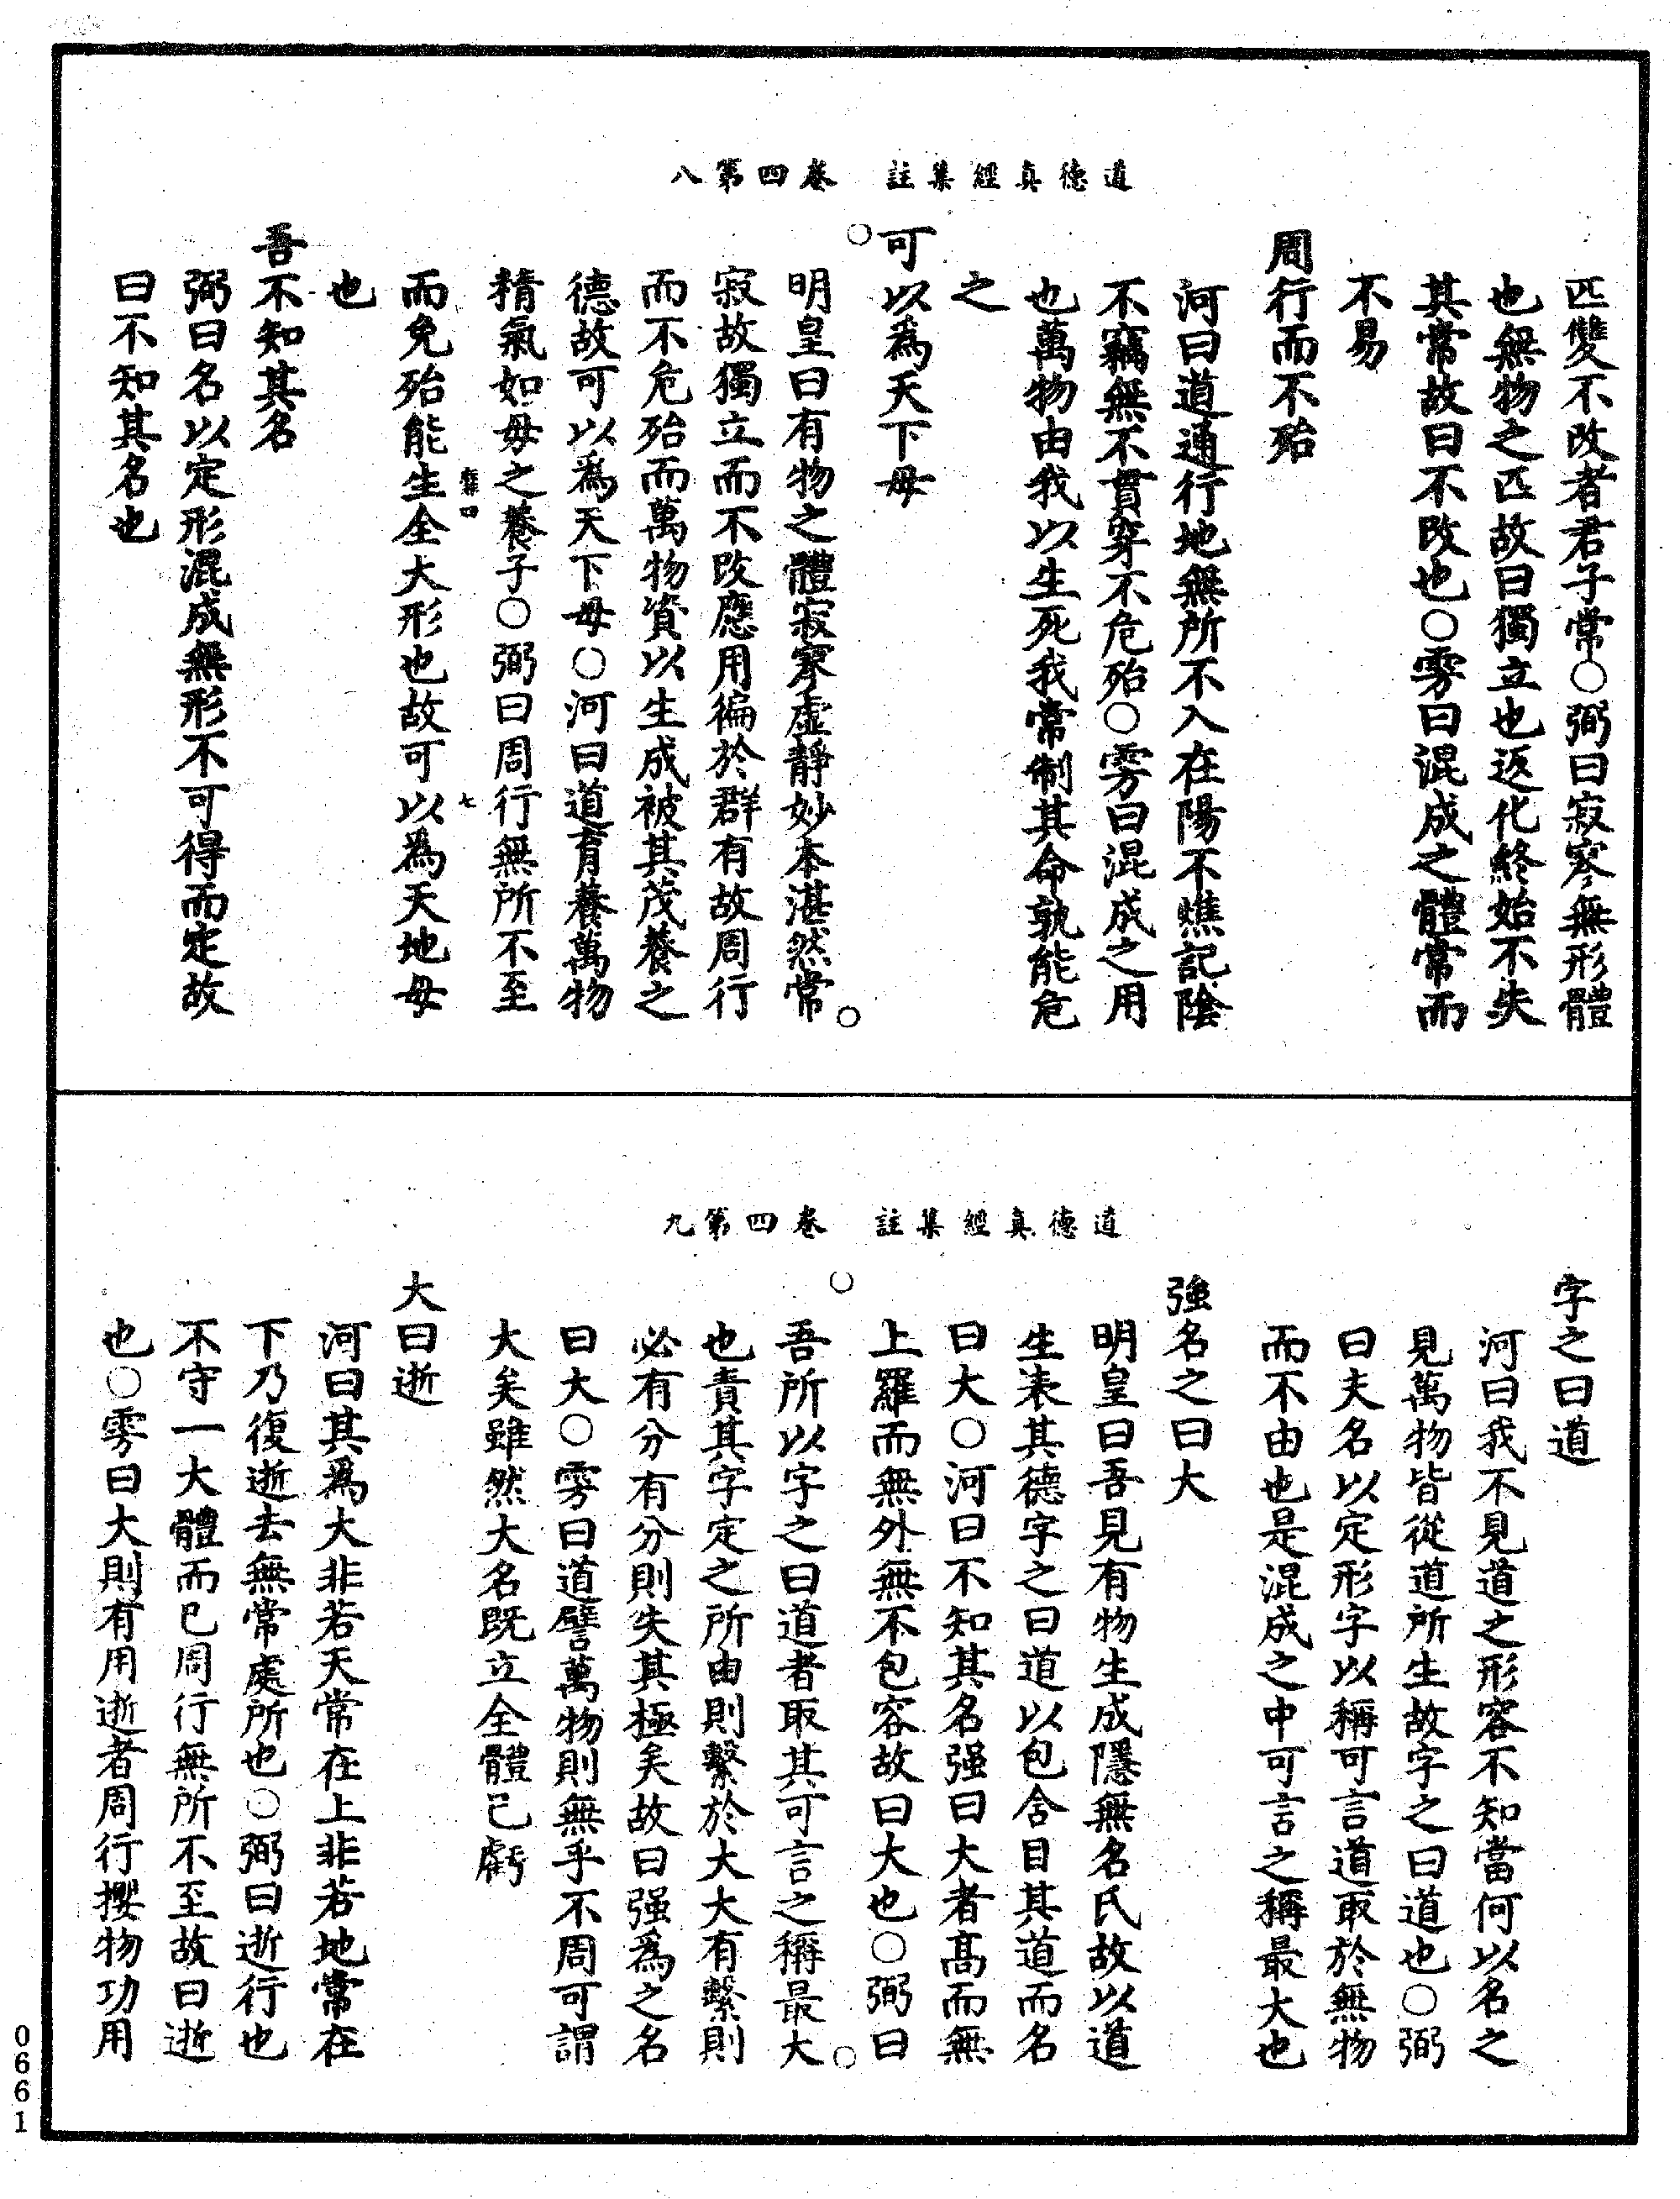 道德真經集註　卷四第八
匹雙不改者君子常○弼曰寂寥無形體
也無物之匹故曰獨立也返化終始不失
其常故曰不改也○雱曰混成之體常而
不易
周行而不殆
河曰道通行地無所不入在陽不燋託陰
不竊無不貫穿不危殆○雱曰混成之用
也萬物由我以生死我常制其命孰能危
之
可以為天下母
明皇曰有物之體寂寥虛靜妙本湛然常
寂故獨立而不改應用徧於群有故周行
而不危殆而萬物資以生成被其茂養之
德故可以為天下母○河曰道育養萬物
精氣如母之養子○弼曰周行無所不至
七
而免殆能生全大形也故可以為天地母
也
吾不知其名
弼曰名以定形混成無形不可得而定故
曰不知其名也
道德真經集註　卷四第九
字之曰道
河曰我不見道之形容不知當何以名之
見萬物皆從道所生故字之曰道也○弼
曰夫名以定形字以稱可言道取於無物
而不由也是混成之中可言之稱最大也
強名之曰大
明皇曰吾見有物生成隱無名氏故以道
生表其德字之曰道以包含目其道而名
曰大○河曰不知其名强曰大者高而無
上羅而無外無不包容故曰大也○弼曰
吾所以字之曰道者取其可言之稱最大
也責其字定之所由則繫於大大有繫則
必有分有分則失其極矣故曰强為之名
曰大○雱曰道譬萬物則無乎不周可謂
大矣雖然大名既立全體已虧
大曰逝
河曰其為大非若天常在上非若地常在
下乃復逝去無常處所也○弼曰逝行也
不守一大體而已周行無所不至故曰逝
也○雱曰大則有用逝者周行攖物功用
0661